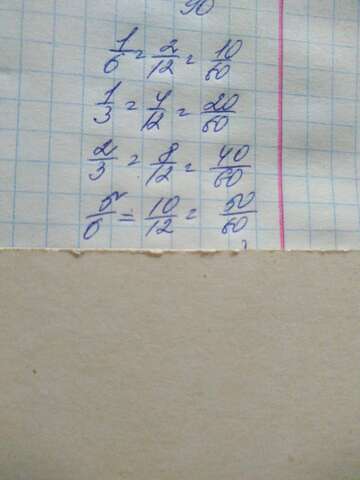 90
1/6 = 2/12 = 10/60
1/3 = 4/12 = 20/60
2/3 = 8/12 = 40/60
5/6 = 10/12 = 50/60